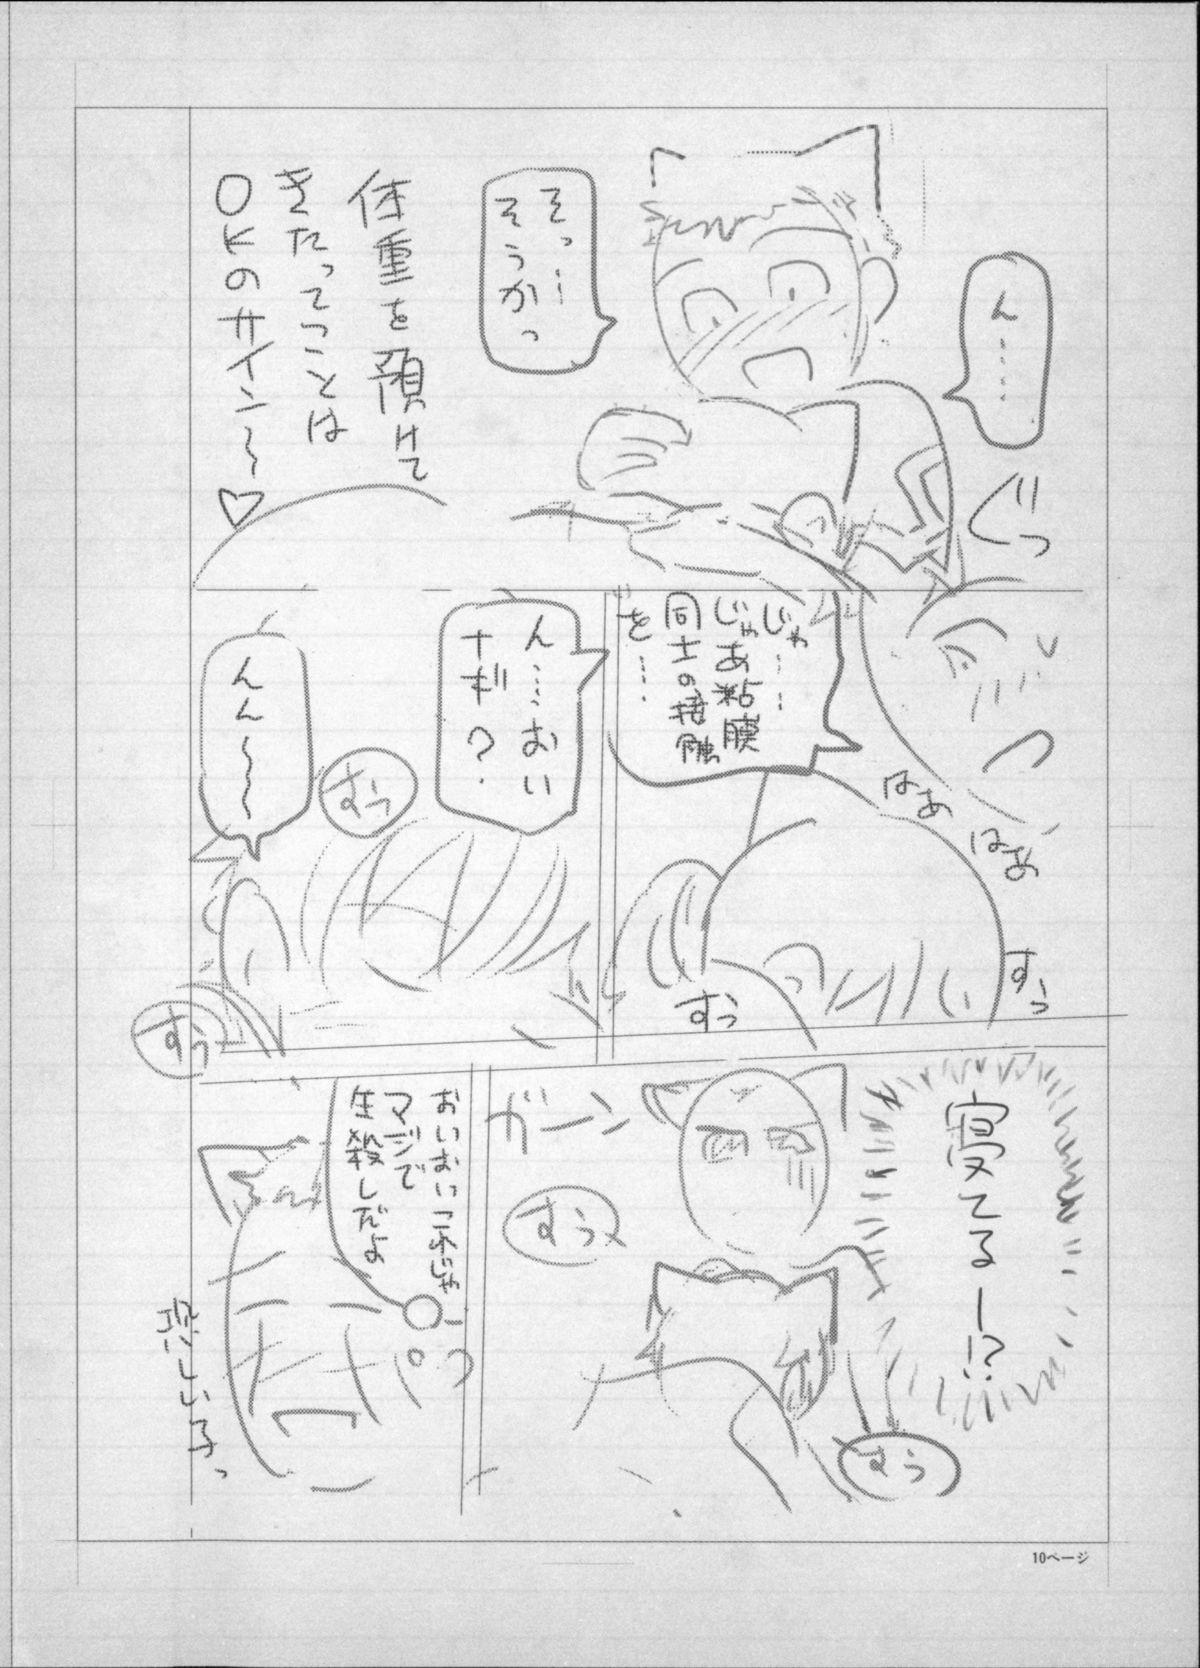 ん……
ぐっ
そっ…
そうかっ
体重を預けて
きたってことは
OKのサイン〜♡
じゃ……
じゃあ粘膜
同士の接触
を……
はぁ
はぁ
すっ
すっ
ん……おい
ナギ?
すっ
んん〜〜〜
すっ
寝てるー!?
すぅ
ガーン
すぅ
おいおいこれじゃ
マジで
生殺しだよ
恐しい子っ
10ページ